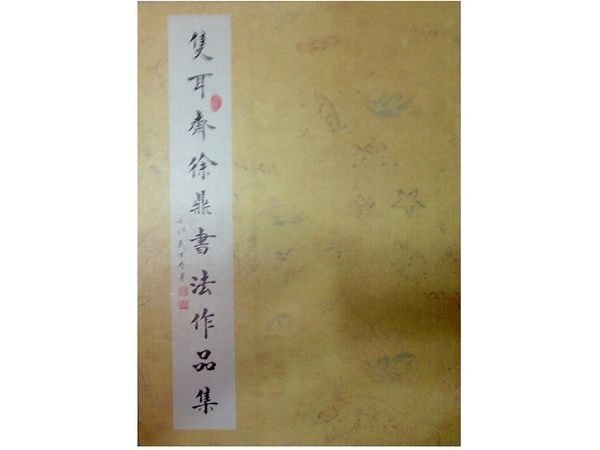 隻耳齋徐鼎書法作品集